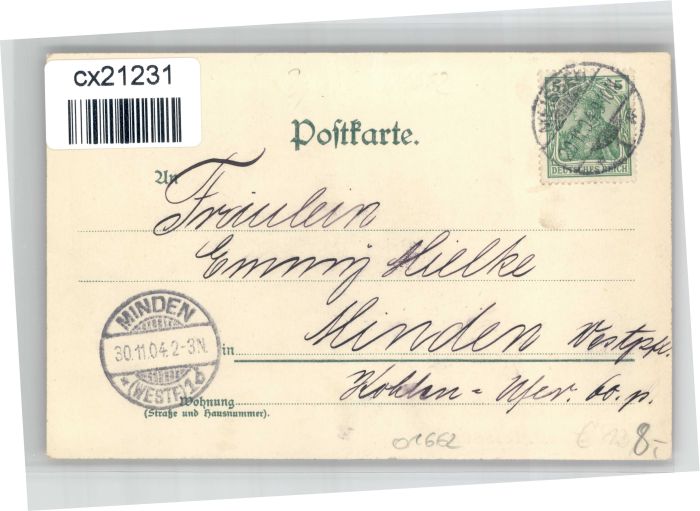 cx21231
Postkarte.
5 5
DEUTSCHES REICH
An
Fräulein
Emmy Hielke
MINDEN
30.11.04.2-3N.
* (WESTF.) 1b
in Minden Westph.
Wohnung Kohlen-Ufer. 60. p.
(Straße und Hausnummer).
01662
€ 12 8,-